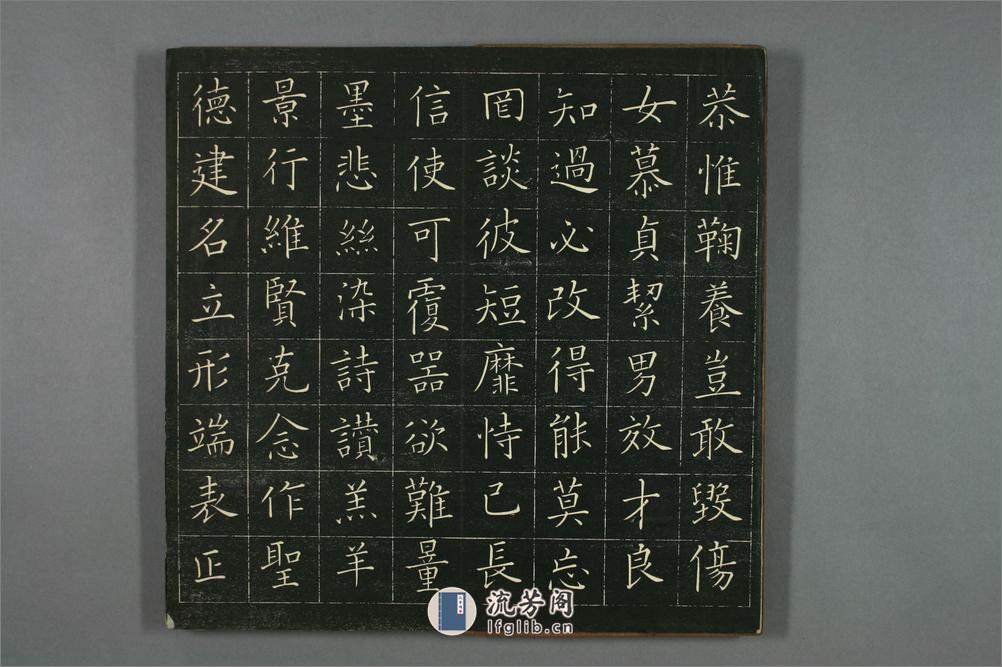 恭惟鞠養豈敢毀傷
女慕貞絜男效才良
知過必改得能莫忘
罔談彼短靡恃己長
信使可覆器欲難量
墨悲絲染詩讃羔羊
景行維賢克念作聖
德建名立形端表正
流芳阁
lfglib.cn